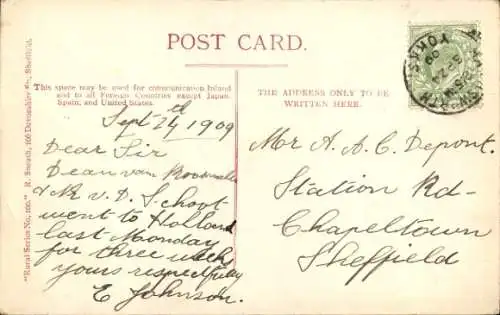 POST CARD.
This space may be used for communication Inland
and to all Foreign Countries except Japan,
Spain, and United States.
THE ADDRESS ONLY TO BE
WRITTEN HERE.
Sept 24th 1909
Dear Sir
Dean van
& Mr v. D. Schoot
went to Holland
last Monday
for three weeks
yours respectfully
E Johnson.
Mr A. A. C. Depont.
Station Rd-
Chapeltown
Sheffield
"Rural Series No. 100." R. Sneath, 100 Devonshire St., Sheffield.